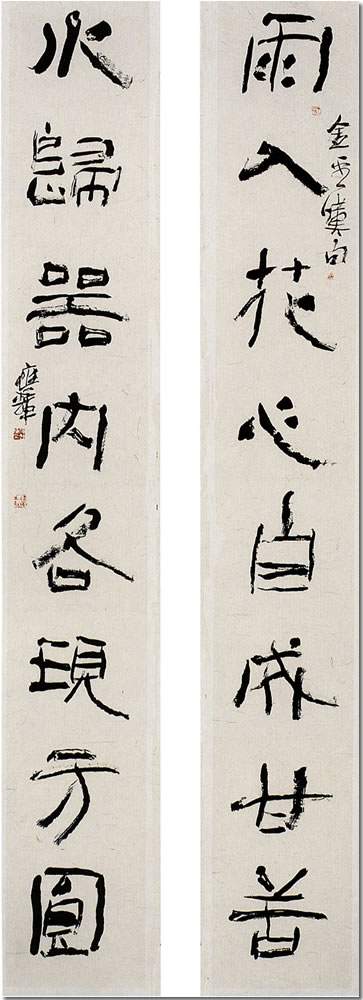 雨入花心自成甘苦
金圣嘆句
水歸器内各現方圓